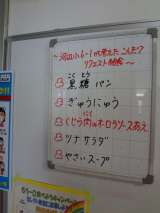 〜河辺小6-1が考えたこんだて
リクエスト給食〜
こく とう
黒糖 パン
ぎゅうにゅう
くじら肉のオーロラソースあえ
ツナサラダ
やさいスープ